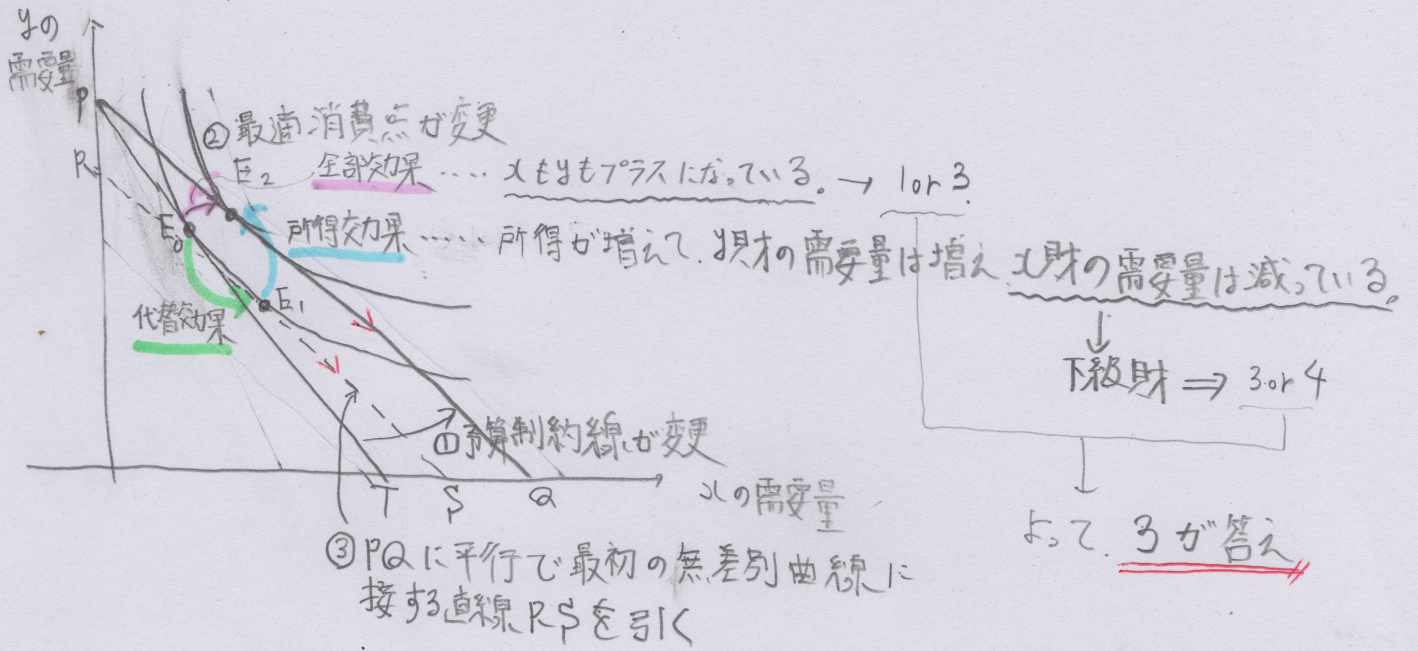 yの
需要量
P
R
②最適消費点が変更
E₂
全部効果‥‥xもyもプラスになっている。→ 1or3.
E₀
所得効果‥‥‥所得が増えて、y財の需要量は増え x財の需要量は減っている。
E₁
代替効果
下級財 ⇒ 3or4
①予算制約線が変更
T
S
Q
xの需要量
③PQに平行で最初の無差別曲線に
接する直線RSを引く
よって、3が答え